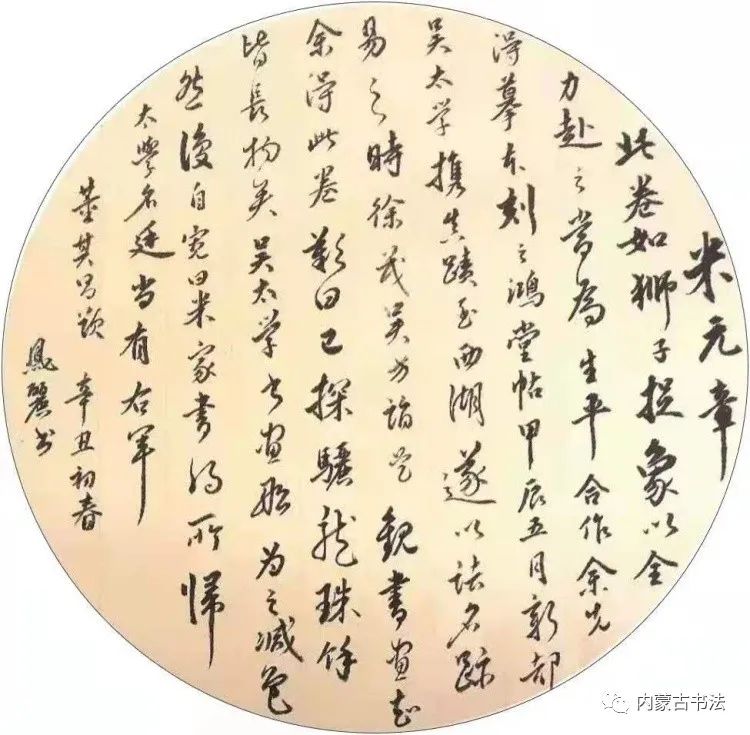 米元章
此卷如獅子捉象以全
力赴之當為生平合作余先
得摹本刻之鴻堂帖甲辰五月新都
吴太学携真蹟至西湖遂以諸名跡
易之時徐茂吴方詣吴觀書画知
余得此卷歎曰已探驪龍珠餘
皆長物矣吴太学書画船為之減色
然後自寬曰米家書得所歸
太學名廷尚有右軍
董其昌題 辛丑初春
鳳麗书
内蒙古书法